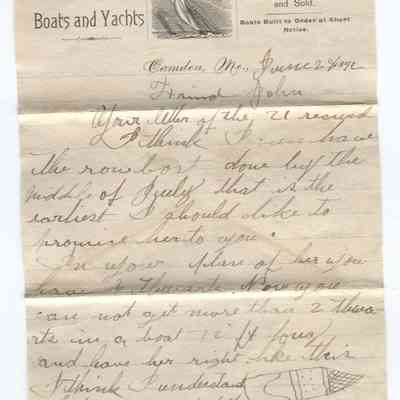 and Sold.
Boats and Yachts
Boats Built to Order at Short
Notice.
Camden, Me., June 24 189
Friend John
Your letter of the 21 recived
I think I can have
the row boat done by the
middle of July that is the
earlest I should like to
promise her to you.
In your plan of her you
have 3 Thwarts. Now you
can not get more than 2 thwa
rts in a boat 12 ft long
and have her right like this
I think I understand